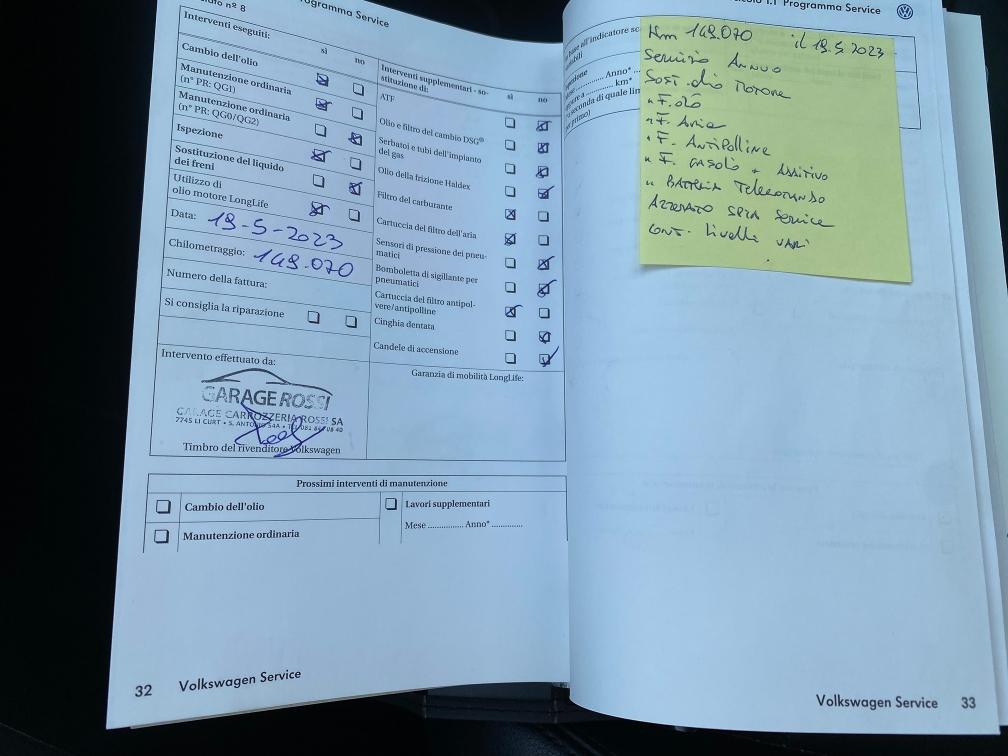 nº 8
Programma Service
Interventi eseguiti:
sì
no
Cambio dell'olio
Manutenzione ordinaria
(nº PR: QG1)
Manutenzione ordinaria
(nº PR: QG0/QG2)
Ispezione
Sostituzione del liquido
dei freni
Utilizzo di
olio motore LongLife
Data: 19-5-2023
Chilometraggio: 149.070
Numero della fattura:
Si consiglia la riparazione
Interventi supplementari - so-
stituzione di:
sì
no
ATF
Olio e filtro del cambio DSG®
Serbatoi e tubi dell'impianto
del gas
Olio della frizione Haldex
Filtro del carburante
Cartuccia del filtro dell'aria
Sensori di pressione dei pneu-
matici
Bomboletta di sigillante per
pneumatici
Cartuccia del filtro antipol-
vere/antipolline
Cinghia dentata
Candele di accensione
Intervento effettuato da:
GARAGE ROSSI
GARAGE CARROZZERIA ROSSI SA
7745 LI CURT • S. ANTONIO 54A • Tel 081 844 08 40
Timbro del rivenditore Volkswagen
Garanzia di mobilità LongLife:
Prossimi interventi di manutenzione
Cambio dell'olio
Manutenzione ordinaria
Lavori supplementari
Mese ................ Anno* .............
32 Volkswagen Service
1.1 Programma Service
base all'indicatore
Anno*
km*
seconda di quale
primo)
Km 149.070 il 19.5 2023
Servizio Annuo
Sost. olio Motore
" F. olio
" F. Aria
" F. Antipolline
" F. Gasolio + Additivo
" Batteria Telecomando
Azzerato Spia Service
Cont. livelli vari
Volkswagen Service 33